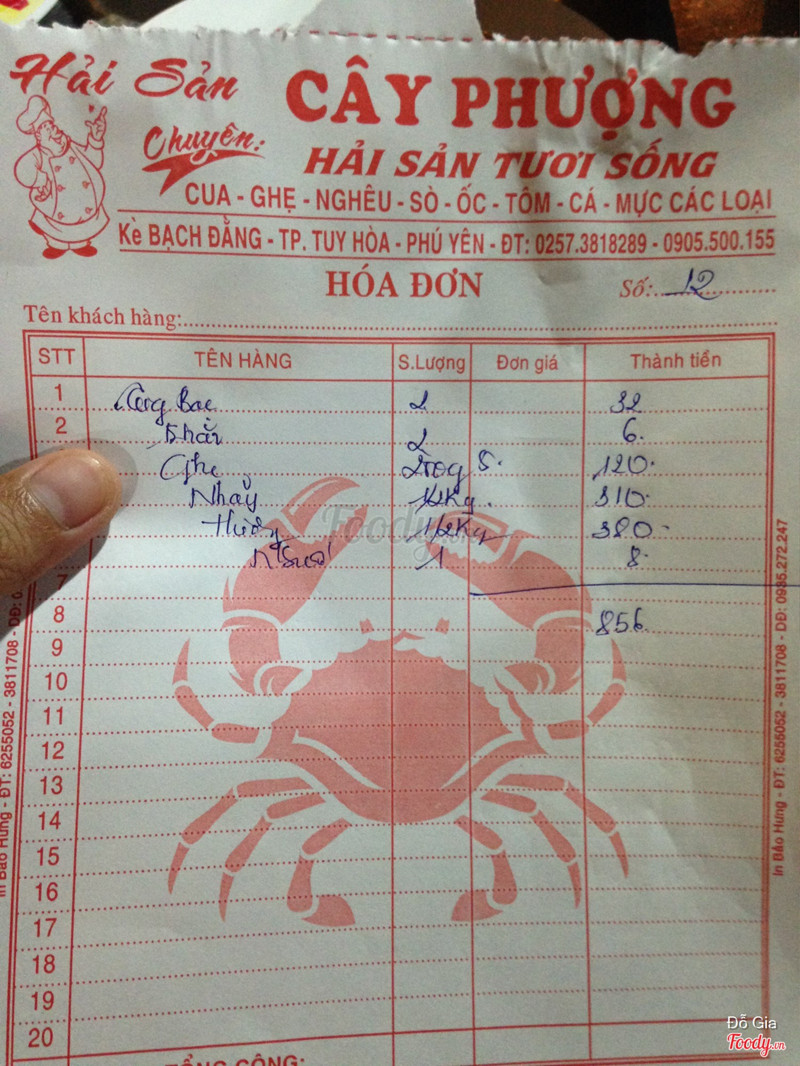 Hải Sản
CÂY PHƯỢNG
Chuyên:
HẢI SẢN TƯƠI SỐNG
CUA - GHẸ - NGHÊU - SÒ - ỐC - TÔM - CÁ - MỰC CÁC LOẠI
Kè BẠCH ĐẰNG - TP. TUY HÒA - PHÚ YÊN - ĐT: 0257.3818289 - 0905.500.155
HÓA ĐƠN
Số: 12
Tên khách hàng:
STT TÊN HÀNG S.Lượng Đơn giá Thành tiền
1 Bạc 2 32
2 Khăn 2 6
Ghẹ 200g 5 120
Nhảy 1/2Kg 310
1/2Kg 380
1 8
7
8 856
9
10
11
12
13
14
15
16
17
18
19
20
TỔNG CỘNG:
In Bảo Hưng - ĐT: 6255052 - 3811708 - DĐ: 0
In Bảo Hưng - ĐT: 6255052 - 3811708 - DĐ: 0935.272.247
Foody.vn
Đỗ Gia
Foody.vn